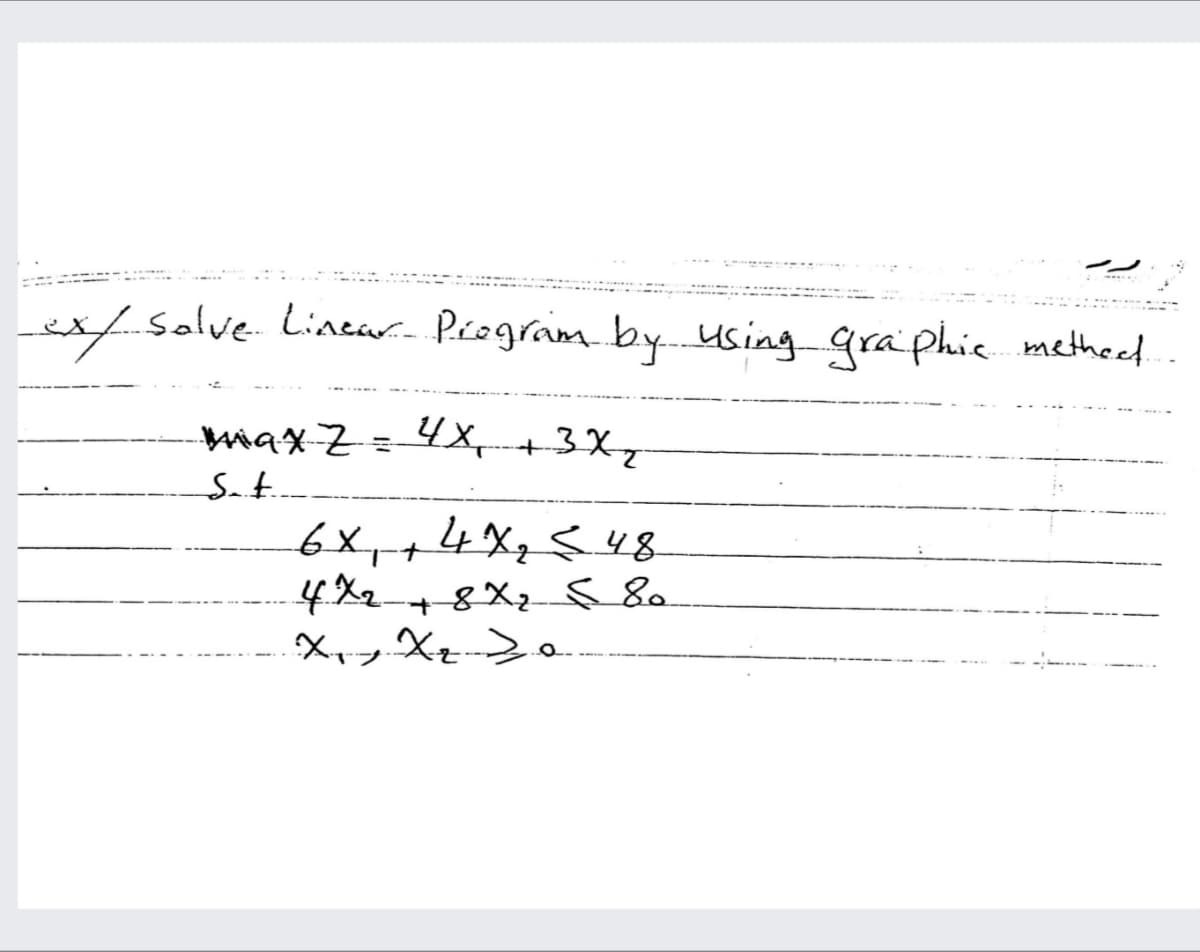 ex/ Solve Linear Program by using graphic method
max Z = 4X₁ + 3X₂
S.t
6X₁ + 4X₂ ≤ 48
4X₂ + 8X₂ ≤ 80
X₁, X₂ ≥ 0